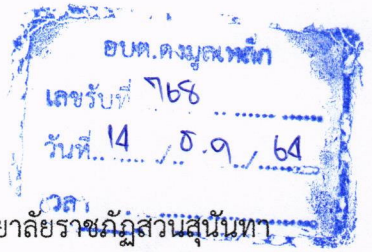 อบต.ดงมูลเหล็ก
เลขรับที่ 768
วันที่ 14 / ธ.ค / 64
เวลา
ยาลัยราชภัฏสวนสุนันทา